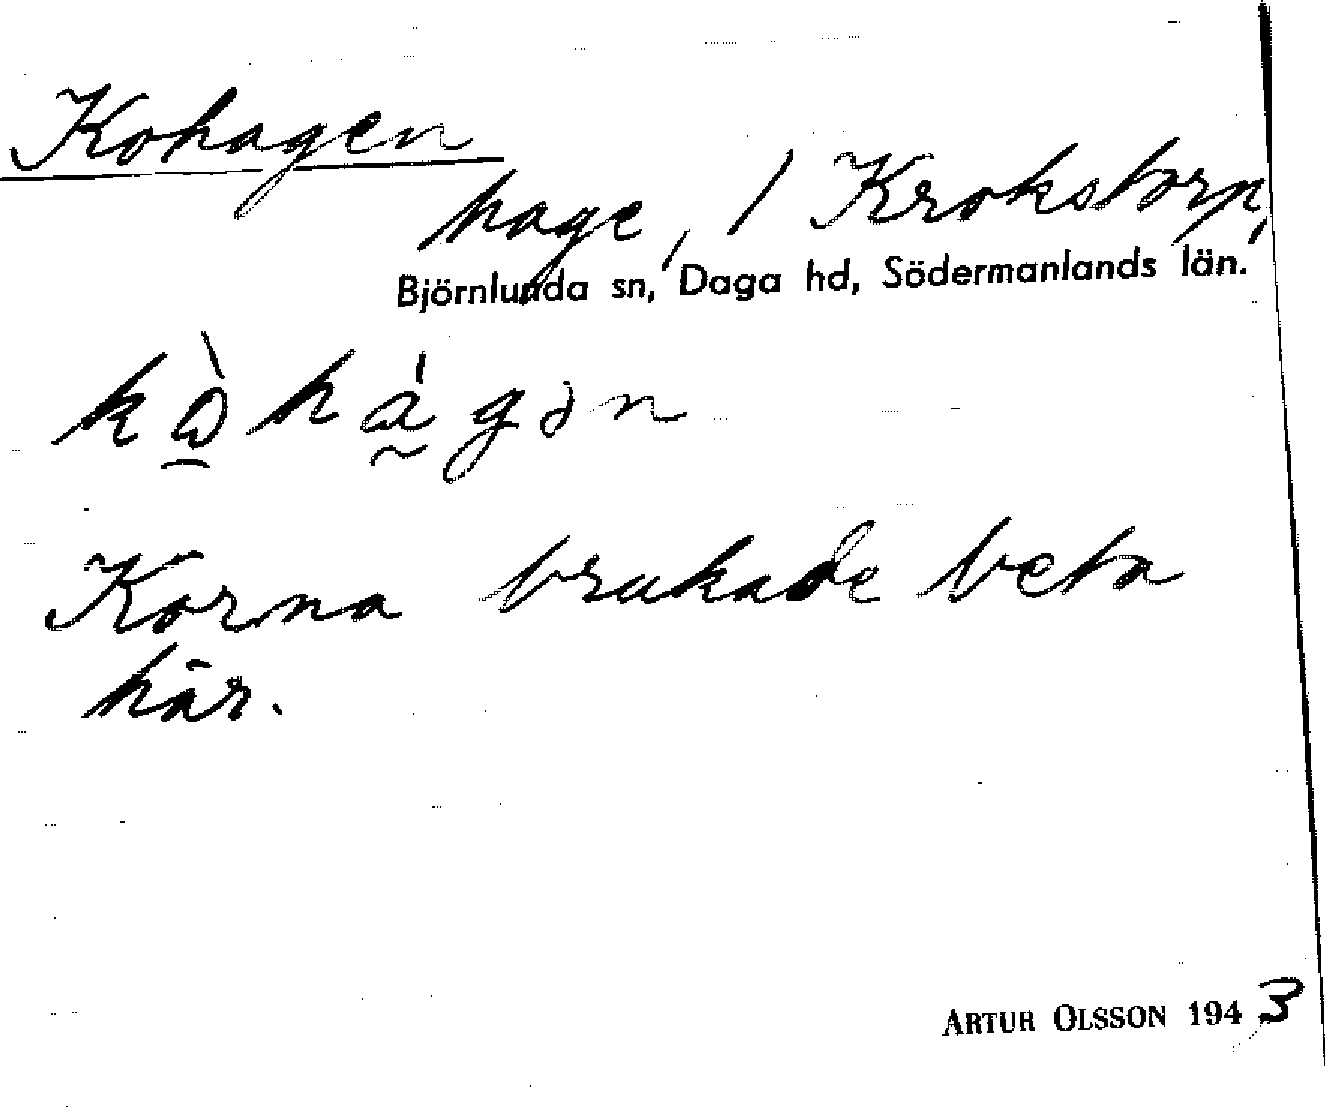 Kohagen
hage, / Krokstorp,
Björnlunda sn, Daga hd, Södermanlands län.
kò̱há̰gən
Korna brukade beta
här.
ARTUR OLSSON 1943